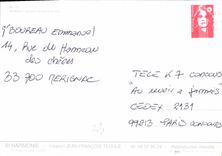 M/ BOUREAU Emmanuel
14, Rue du Hameau
des chênes
33 700 MERIGNAC
TELE K7 CONCOURS
"Au revoir à jamais"
CEDEX 2131
99213 - PARIS CONCOURS
HARMONIE
JEAN-FRANÇOIS